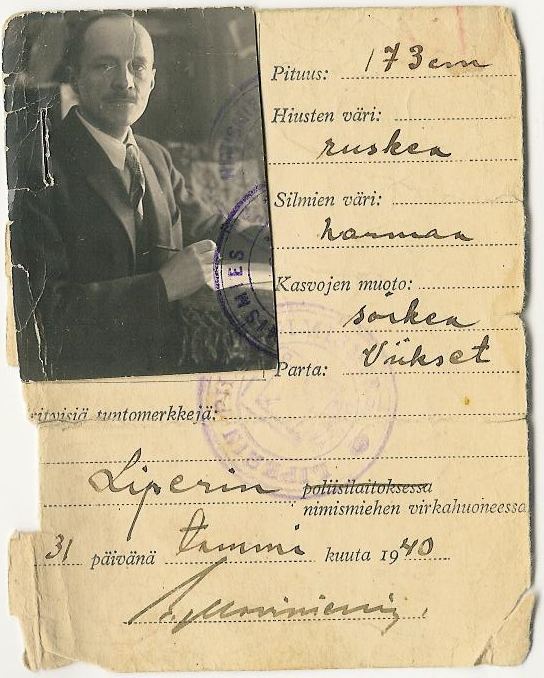 Pituus: 173 cm
Hiusten väri:
ruskea
Silmien väri:
harmaa
Kasvojen muoto:
soikea
Parta: Viikset
tuntomerkkejä:
Liperin poliisilaitoksessa
nimismiehen virkahuoneessa
31 päivänä tammi kuuta 1940
NIMISMIES
LIPERIN